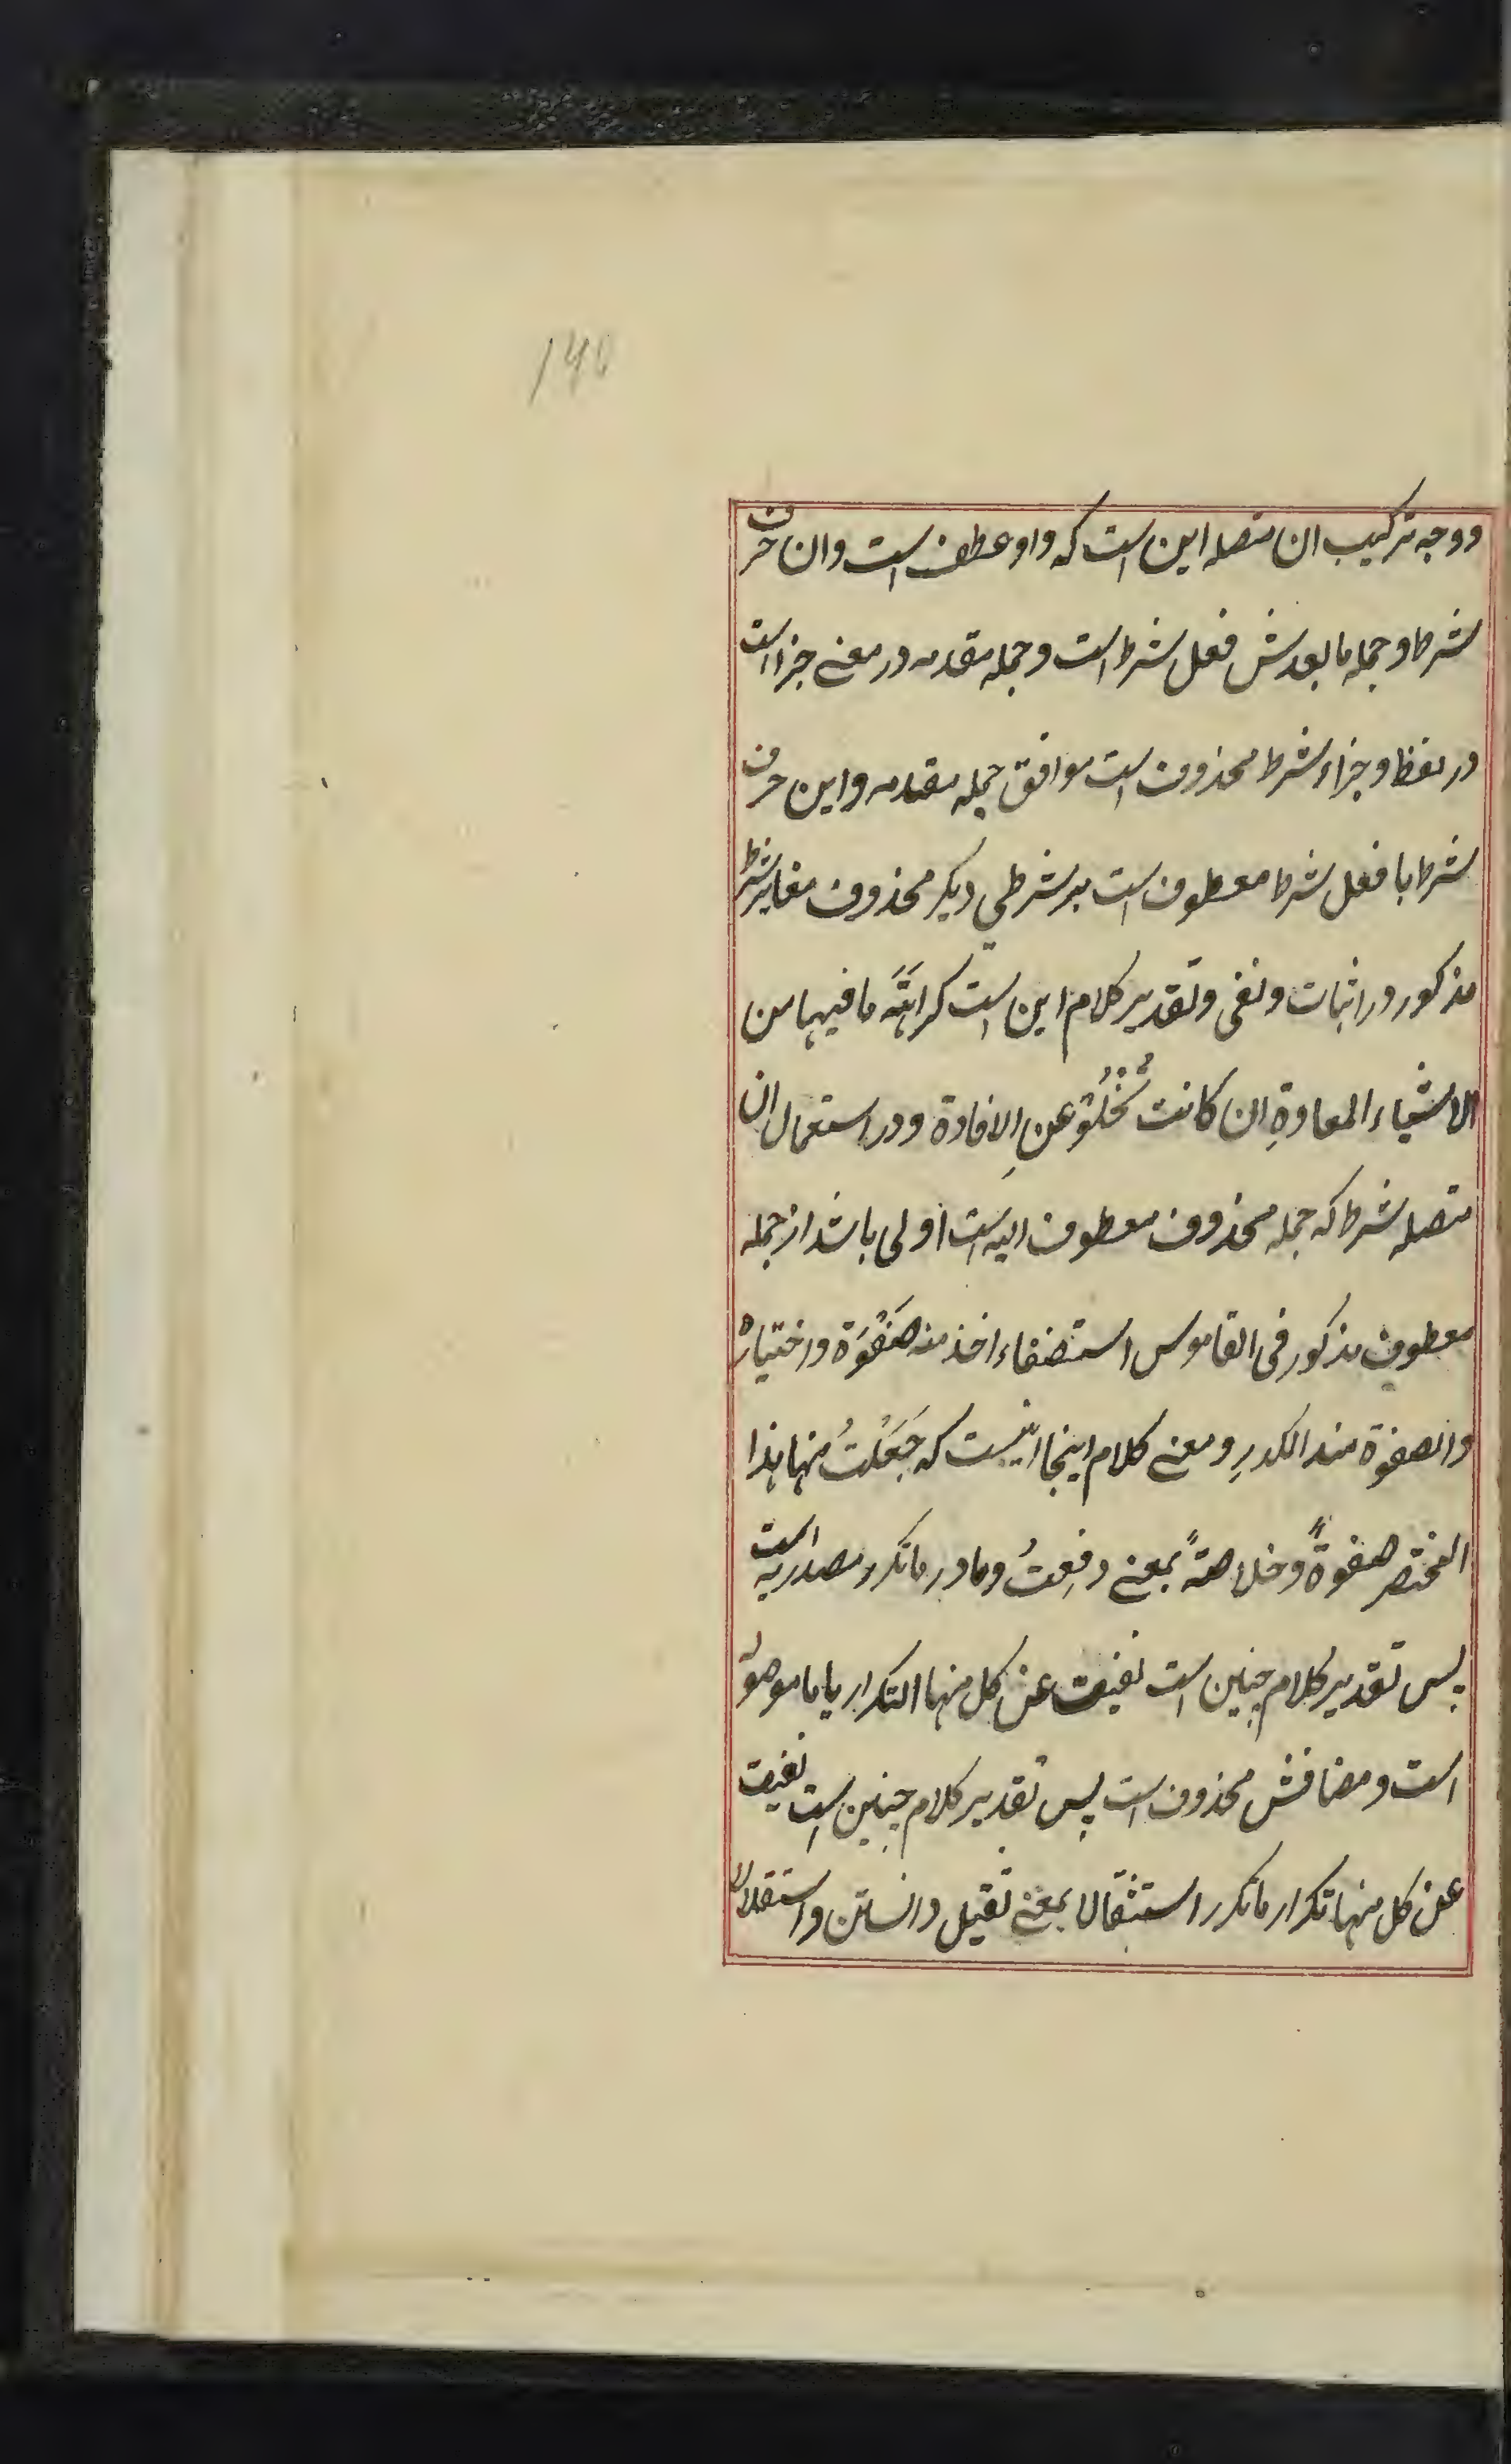 ۱۴۵
ووجه ترکیب ان متصله این است که واو عطف است وان حرف
شرط و جمله ما بعدش فعل شرط است و جمله مقدمه در معنے جزا است
در لفظ و جزاء شرط محذوف است موافق جمله مقدمه و این حرف
شرط با فعل شرط معطوف است بر شرطی دیگر محذوف مغایر شرط
مذکور در اثبات و نفی و تقدیر کلام این است کراهَتَه ما فیها من
الاشیاء المعادةِ ان کانت تُخْلُو عنِ الافادة و در استعمال ان
متصله شرط که جمله محذوف معطوف الیه است اولی باشد از جمله
معطوف مذکور فی القاموس استصفاء اخذ منه صَفْوَة و اختیاره
والصفوة ضد الکدرِ و معنے کلام اینجا اینست که جَعَلتُ منها هذا
المختصر صفوةً و خلاصةً بمعنے دفعتُ و ما در ماتکرر مصدریه است
پس تقدیر کلام چنین است نفیت عن کل منها التکرار یا ما موصوله
است و مضافش محذوف است پس تقدیر کلام چنین است نفیت
عن کل منها تکرار ماتکرر استثقالا بمعنے ثقیل دانستن و استقلال